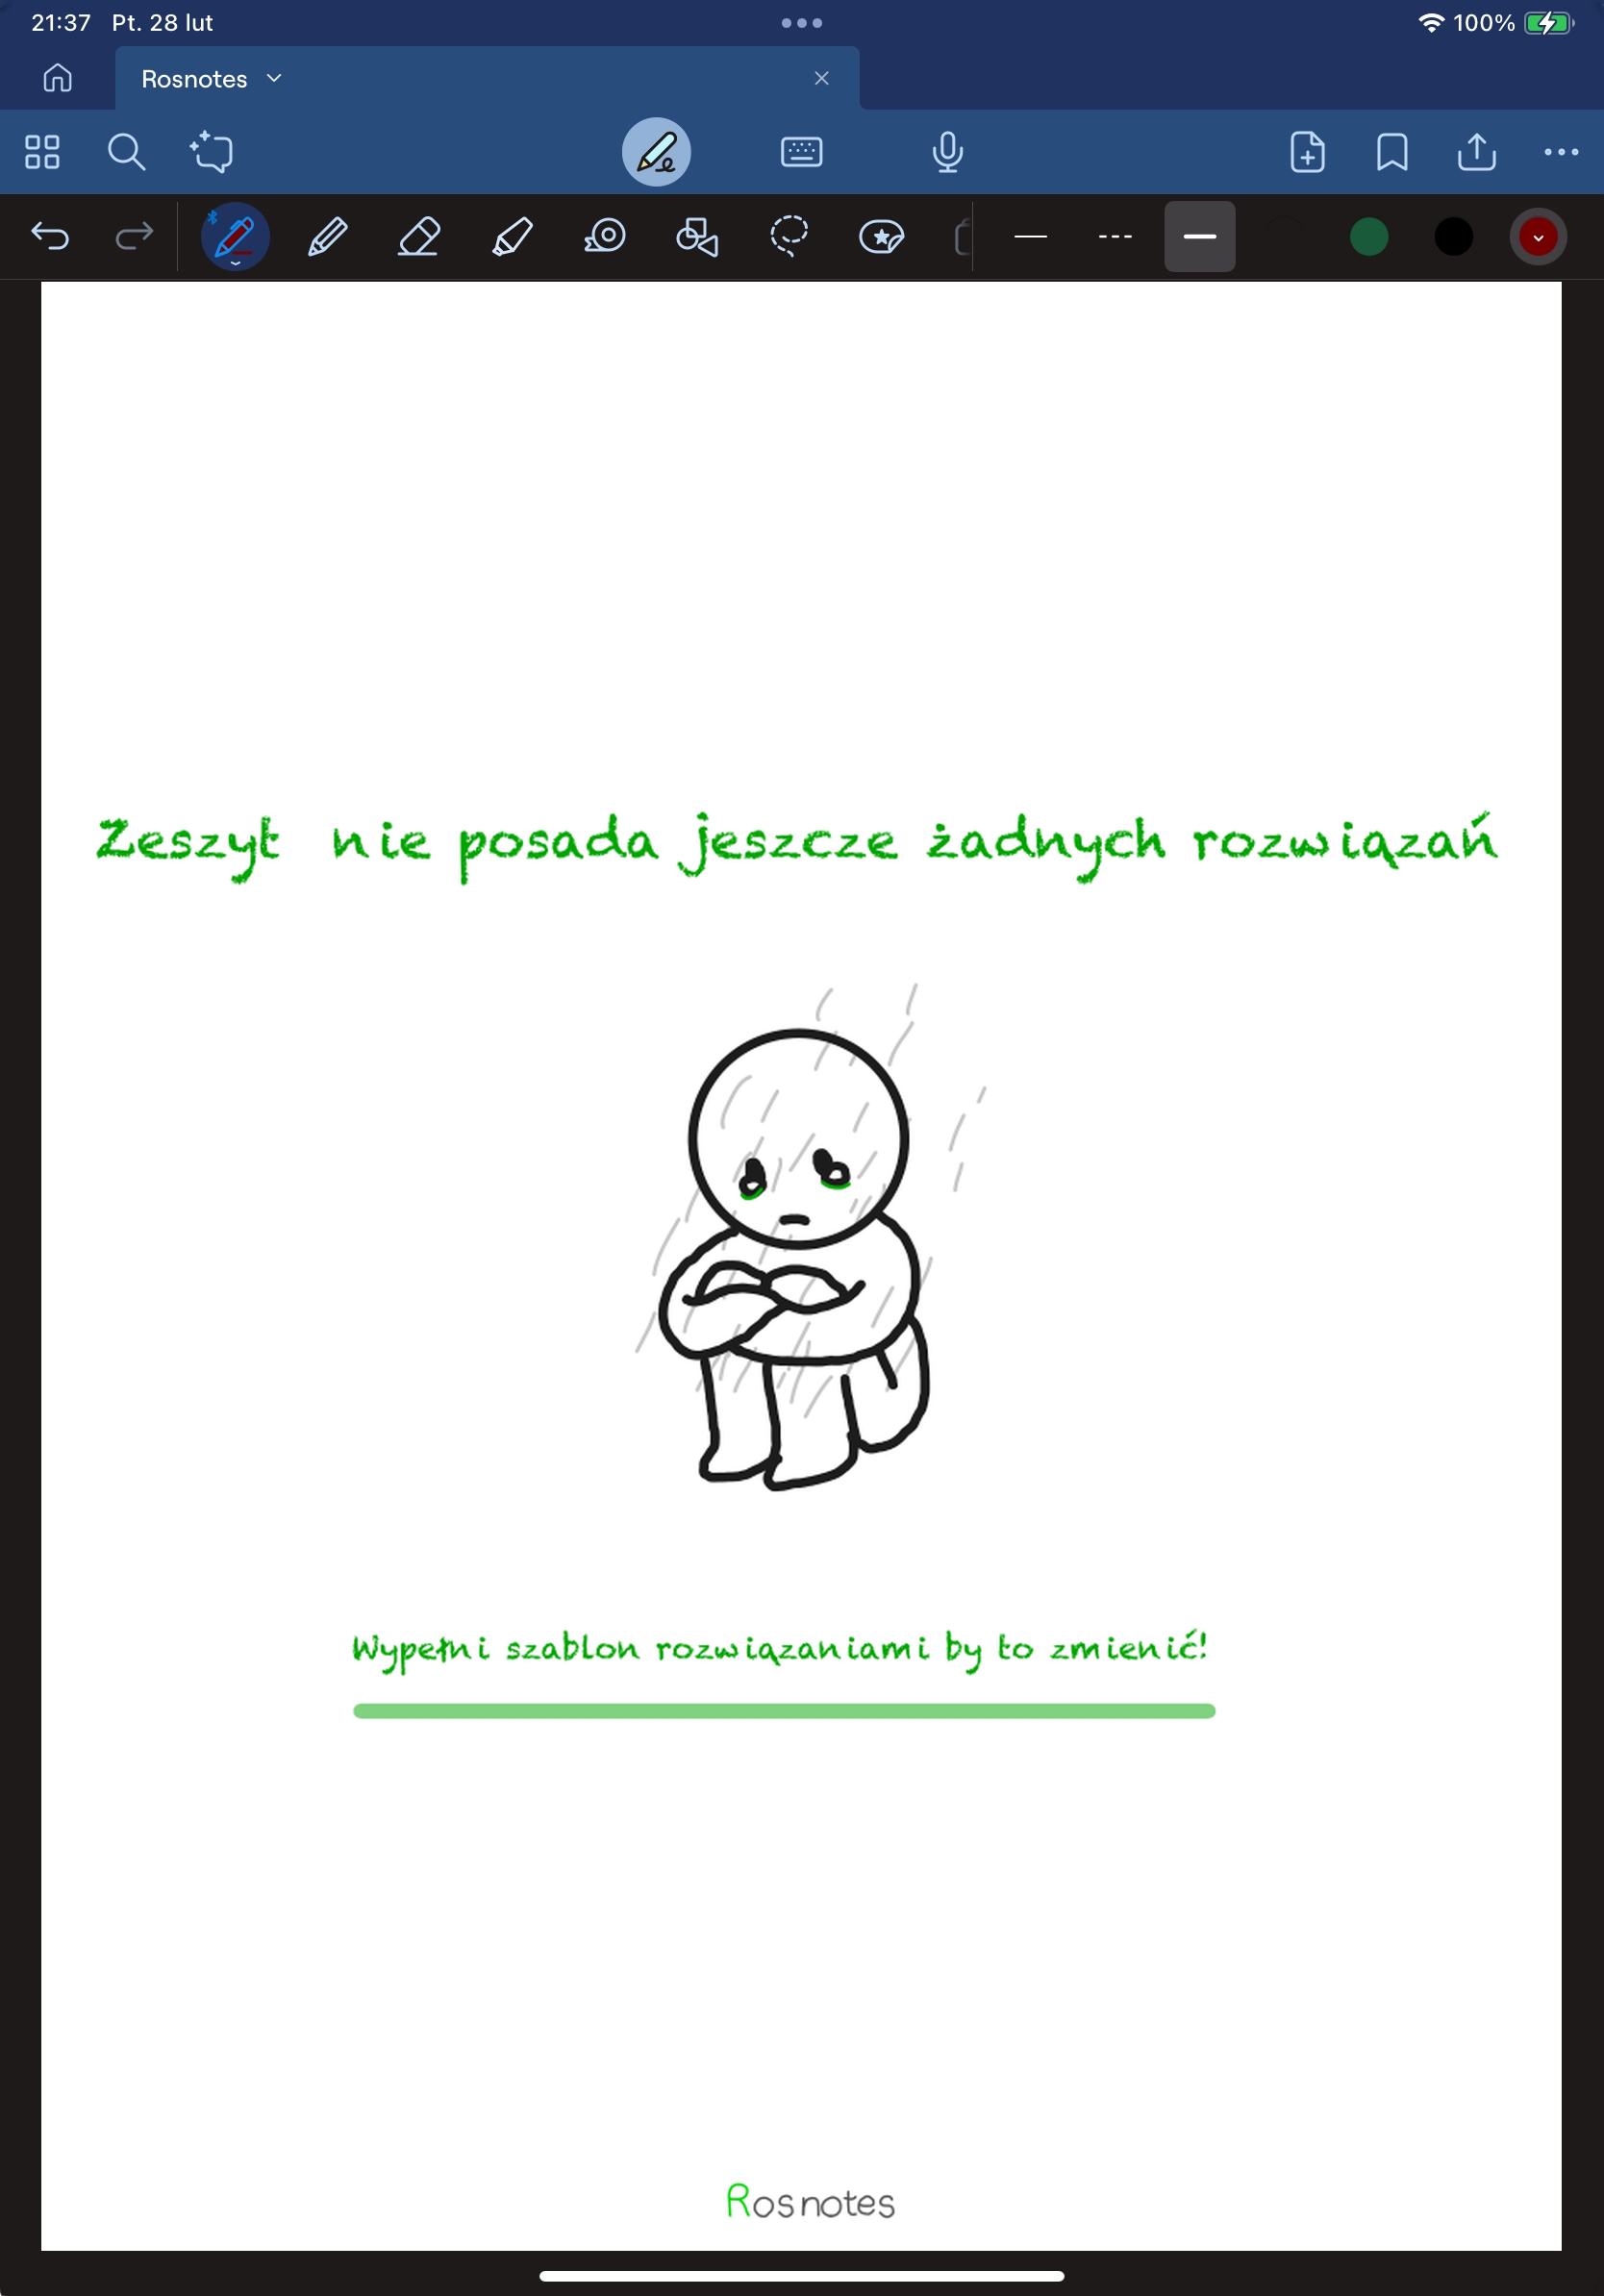 21:37 Pt. 28 lut
100%
Rosnotes
Zeszyt nie posada jeszcze żadnych rozwiązań
Wypełni szablon rozwiązaniami by to zmienić!
Rosnotes